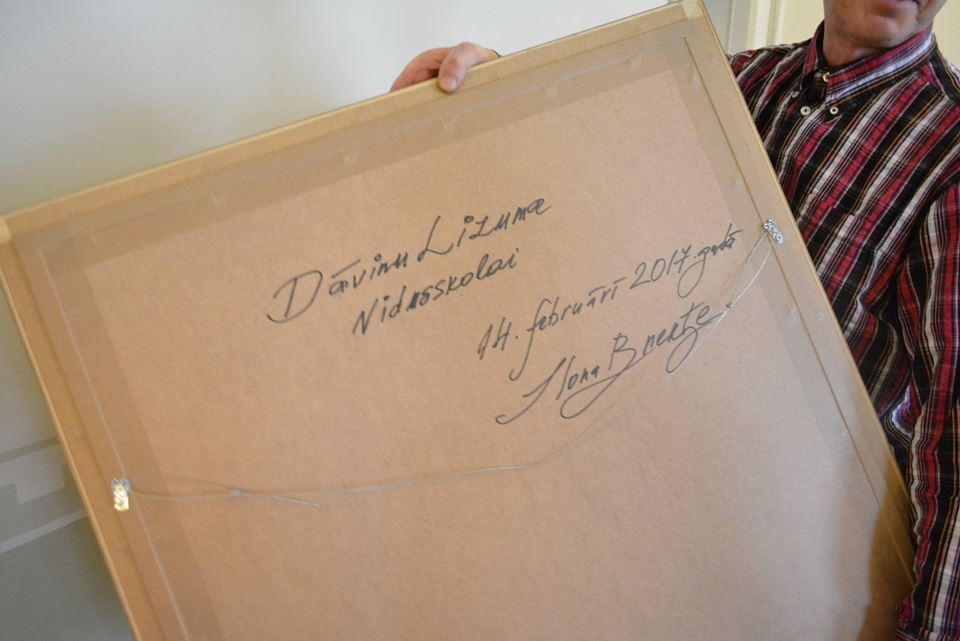 Dāvinu Lizuma
Vidusskolai
14. februārī 2017. gadā
Ilona Brekte